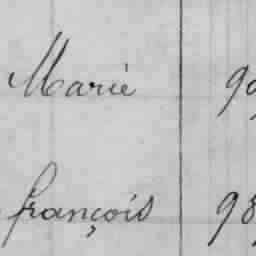 Marie 90
françois 98